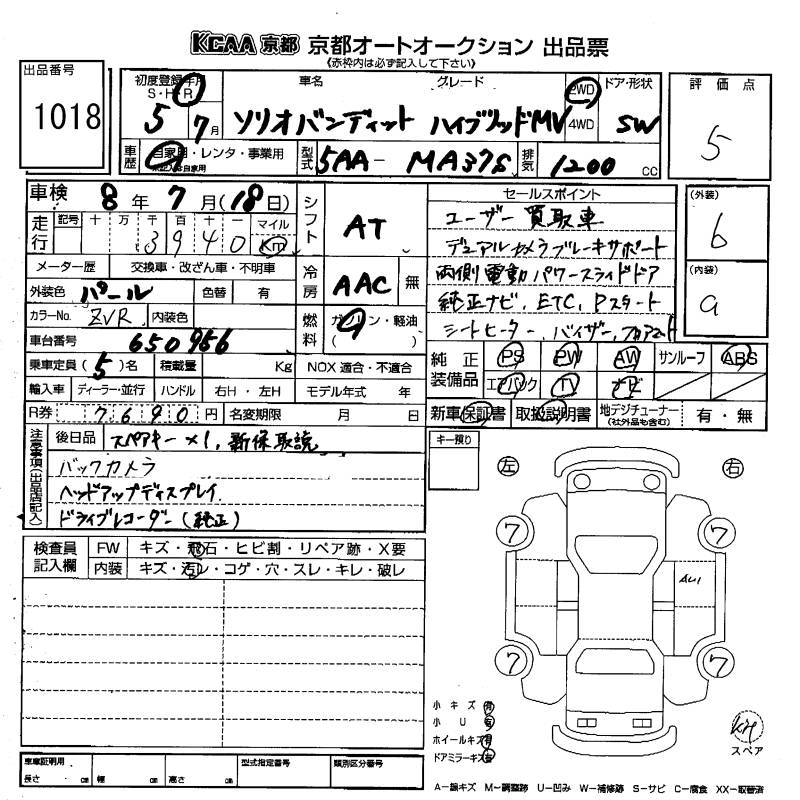 KCAA 京都 京都オートオークション 出品票
《赤枠内は必ず記入して下さい》
出品番号
1018
初度登録年月
S・H・R
5 7月
車名
ソリオバンディット
グレード
ハイブリッドMV
2WD
4WD
ドア・形状
5W
評価点
5
車歴
自家用・レンタ・事業用
型式
5AA-MA37S
排気
1200 cc
車検
8年7月(18日)
走行
記号 十 万 千 百 十 一 マイル
3 9 4 0 Km
シフト
AT
セールスポイント
ユーザー買取車
デュアルカメラブレーキサポート
両側電動パワースライドドア
純正ナビ、ETC、Pスタート
シートヒーター、バイザー、フロアマット
(外装)
6
(内装)
a
メーター歴 交換車・改ざん車・不明車
冷房
AAC 無
外装色 パール 色替 有
カラーNo. ZVR 内装色
燃料
ガソリン・軽油
( )
車台番号 650956
乗車定員(5)名 積載量 Kg NOX 適合・不適合
純正装備品
PS PW AW サンルーフ ABS
エアバック TV ナビ
輸入車 ディーラー・並行 ハンドル 右H・左H モデル年式 年
R券 7690円 名変期限 月 日
新車保証書 取扱説明書 地デジチューナー(社外品も含む) 有・無
注意事項(出品店記入)
後日品 スペアキー×1、新保取説
バックカメラ
ヘッドアップディスプレイ
ドライブレコーダー(純正)
キー預り
左 右
7 7
AU1
7 7
検査員記入欄
FW キズ・飛石・ヒビ割・リペア跡・X要
内装 キズ・汚レ・コゲ・穴・スレ・キレ・破レ
小キズ 有
小U 有
ホイールキズ 有
ドアミラーキズ 有
スペア
車庫証明用
長さ cm 幅 cm 高さ cm
型式指定番号
類別区分番号
A-線キズ M-調整跡 U-凹み W-補修跡 S-サビ C-腐食 XX-取替済